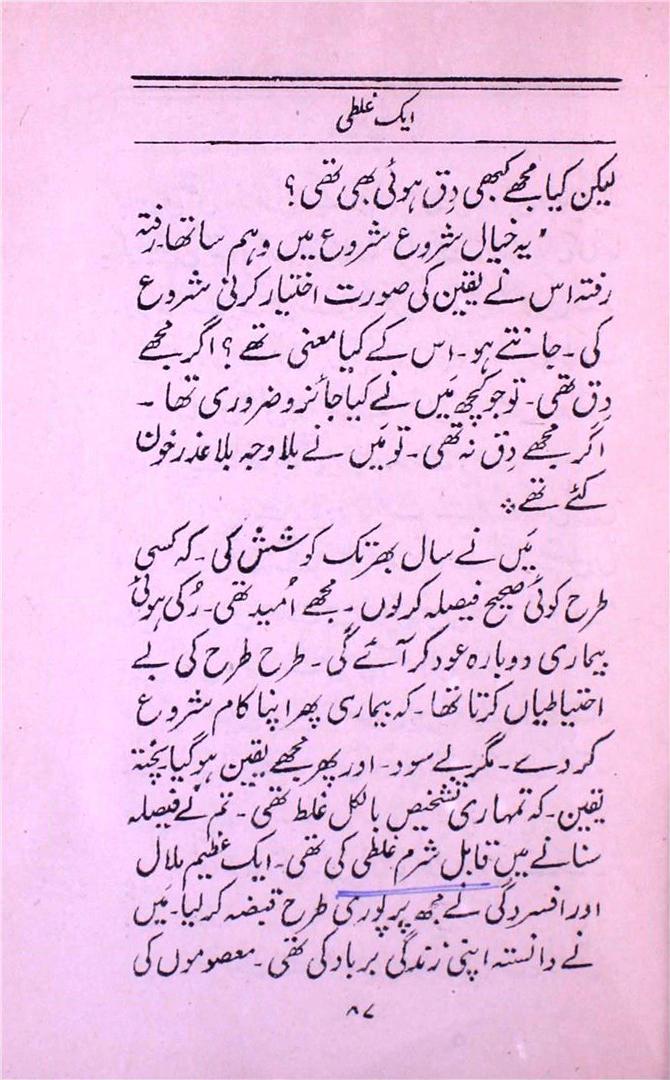 ایک غلطی
لیکن کیا مجھے کبھی دِق ہوئی بھی تھی ؟
" یہ خیال شروع شروع میں وہم سا تھا۔ رفتہ
رفتہ اس نے یقین کی صورت اختیار کرنی شروع
کی ۔ جانتے ہو ۔ اس کے کیا معنی تھے ؟ اگر مجھے
دِق تھی ۔ تو جو کچھ مَیں نے کیا جائز و ضروری تھا ۔
اگر مجھے دِق نہ تھی ۔ تو مَیں نے بلا وجہ بلا عذر خون
کئے تھے ⁘
مَیں نے سال بھر تک کوشش کی ۔ کہ کسی
طرح کوئی صحیح فیصلہ کر لوں ۔ مجھے اُمید تھی ۔ رُکی ہوئی
بیماری دوبارہ عود کر آئے گی ۔ طرح طرح کی بے
احتیاطیاں کرتا تھا ۔ کہ بیماری پھر اپنا کام شروع
کر دے ۔ مگر بے سود ۔ اور پھر مجھے یقین ہو گیا پختہ
یقین ۔ کہ تمہاری تشخیص بالکل غلط تھی ۔ تم نے فیصلہ
سنانے میں قابل شرم غلطی کی تھی ۔ ایک عظیم ملال
اور افسردگی نے مجھ پر پوری طرح قبضہ کر لیا ۔ مَیں
نے دانستہ اپنی زندگی برباد کی تھی ۔ معصوموں کی
۸۷